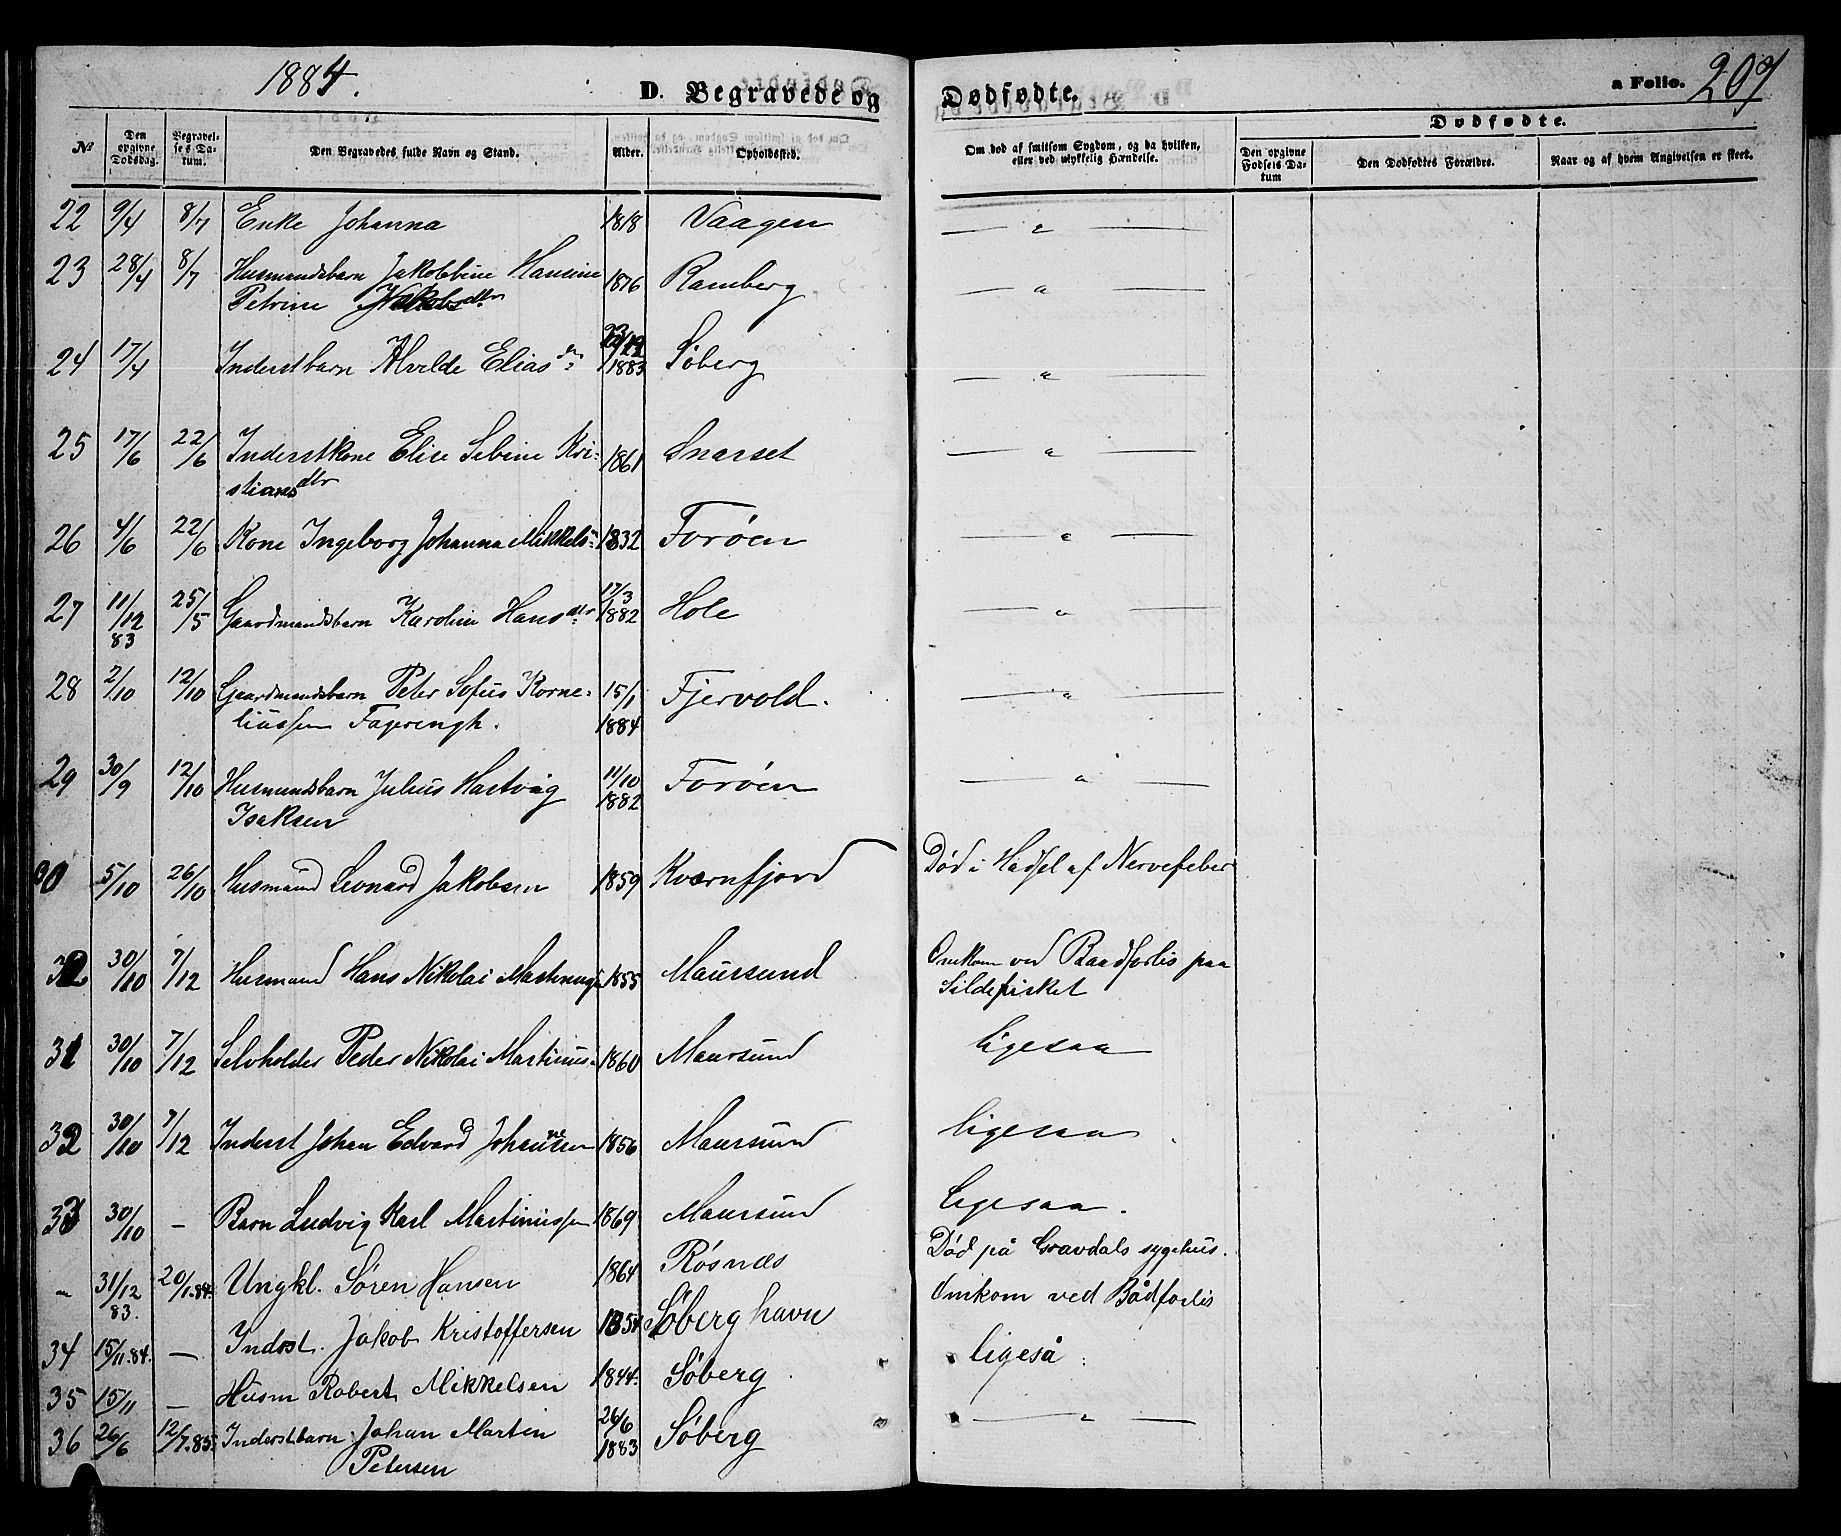 1884.
D. Begravede og Dødfødte.
a Folio. 207
№ Den opgivne Dødsdag. Begravelses Datum. Den Begravedes fulde Navn og Stand. Alder. Opholdssted. Om død af smitsom Sygdom, og da hvilken, eller ved ulykkelig Hændelse. Den opgivne Fødsels Datum Den Dødfødtes Forældre. Naar og af hvem Angivelsen er skeet.
Dødfødte.
22 9/4 8/7 Enke Johanna 1818 Vaagen — " —
23 28/4 8/7 Husmandsbarn Jakobbine Hansine 1876 Ramberg — " —
Petrine Jakobsdtr
24 17/4 Inderstbarn Alvilde Elias dtr 1883 Søberg — " —
25 17/6 22/6 Inderstkone Elise Sebine Kri- 1861 Snarset — " —
stiansdtr
26 4/6 22/6 Kone Ingeborg Johanna Mikkels- 1832 Forøen — " —
27 11/12 83 25/5 Gaardmandsbarn Karoline Hansdtr 17/3 1882 Hole — " —
28 2/10 12/10 Gaardmandsbarn Peter Sofus Korne- 15/1 1884 Fjervold. — " —
liussen Fagerengh.
29 30/9 12/10 Husmandsbarn Julius Hartvig 11/10 1882 Forøen — " —
Isaksen
30 5/10 26/10 Husmand Leonard Jakobsen 1859 Kværnfjord Død i Hadsel af Nervefeber
30/10 7/12 Husmand Hans Nikolai 1855 Maursund Omkom ved Baadforlis paa
Sildefisket
31 30/10 7/12 Selvholder Peder Nikolai Martinus- 1860 Maursund ligesaa
32 30/10 7/12 Inderst Johan Edvard Johansen 1856 Maursund ligesaa
33 30/10 — Barn Ludvig Karl Martinussen 1869 Maursund Ligesaa.
- 31/12 83. 20/1.84. Ungkl. Søren Hansen 1864 Røsnæs Død på Gravdals sygehus.
34 15/11.84. — Inderst. Jakob Kristoffersen 1854 Søberg havn Omkom ved Bådforlis
35 15/11 — Husm Robert Mikkelsen 1844. Søberg ligeså
36 26/6 12/7.85. Inderstbarn Johan Martin 26/6 1883 Søberg — " —
Petersen